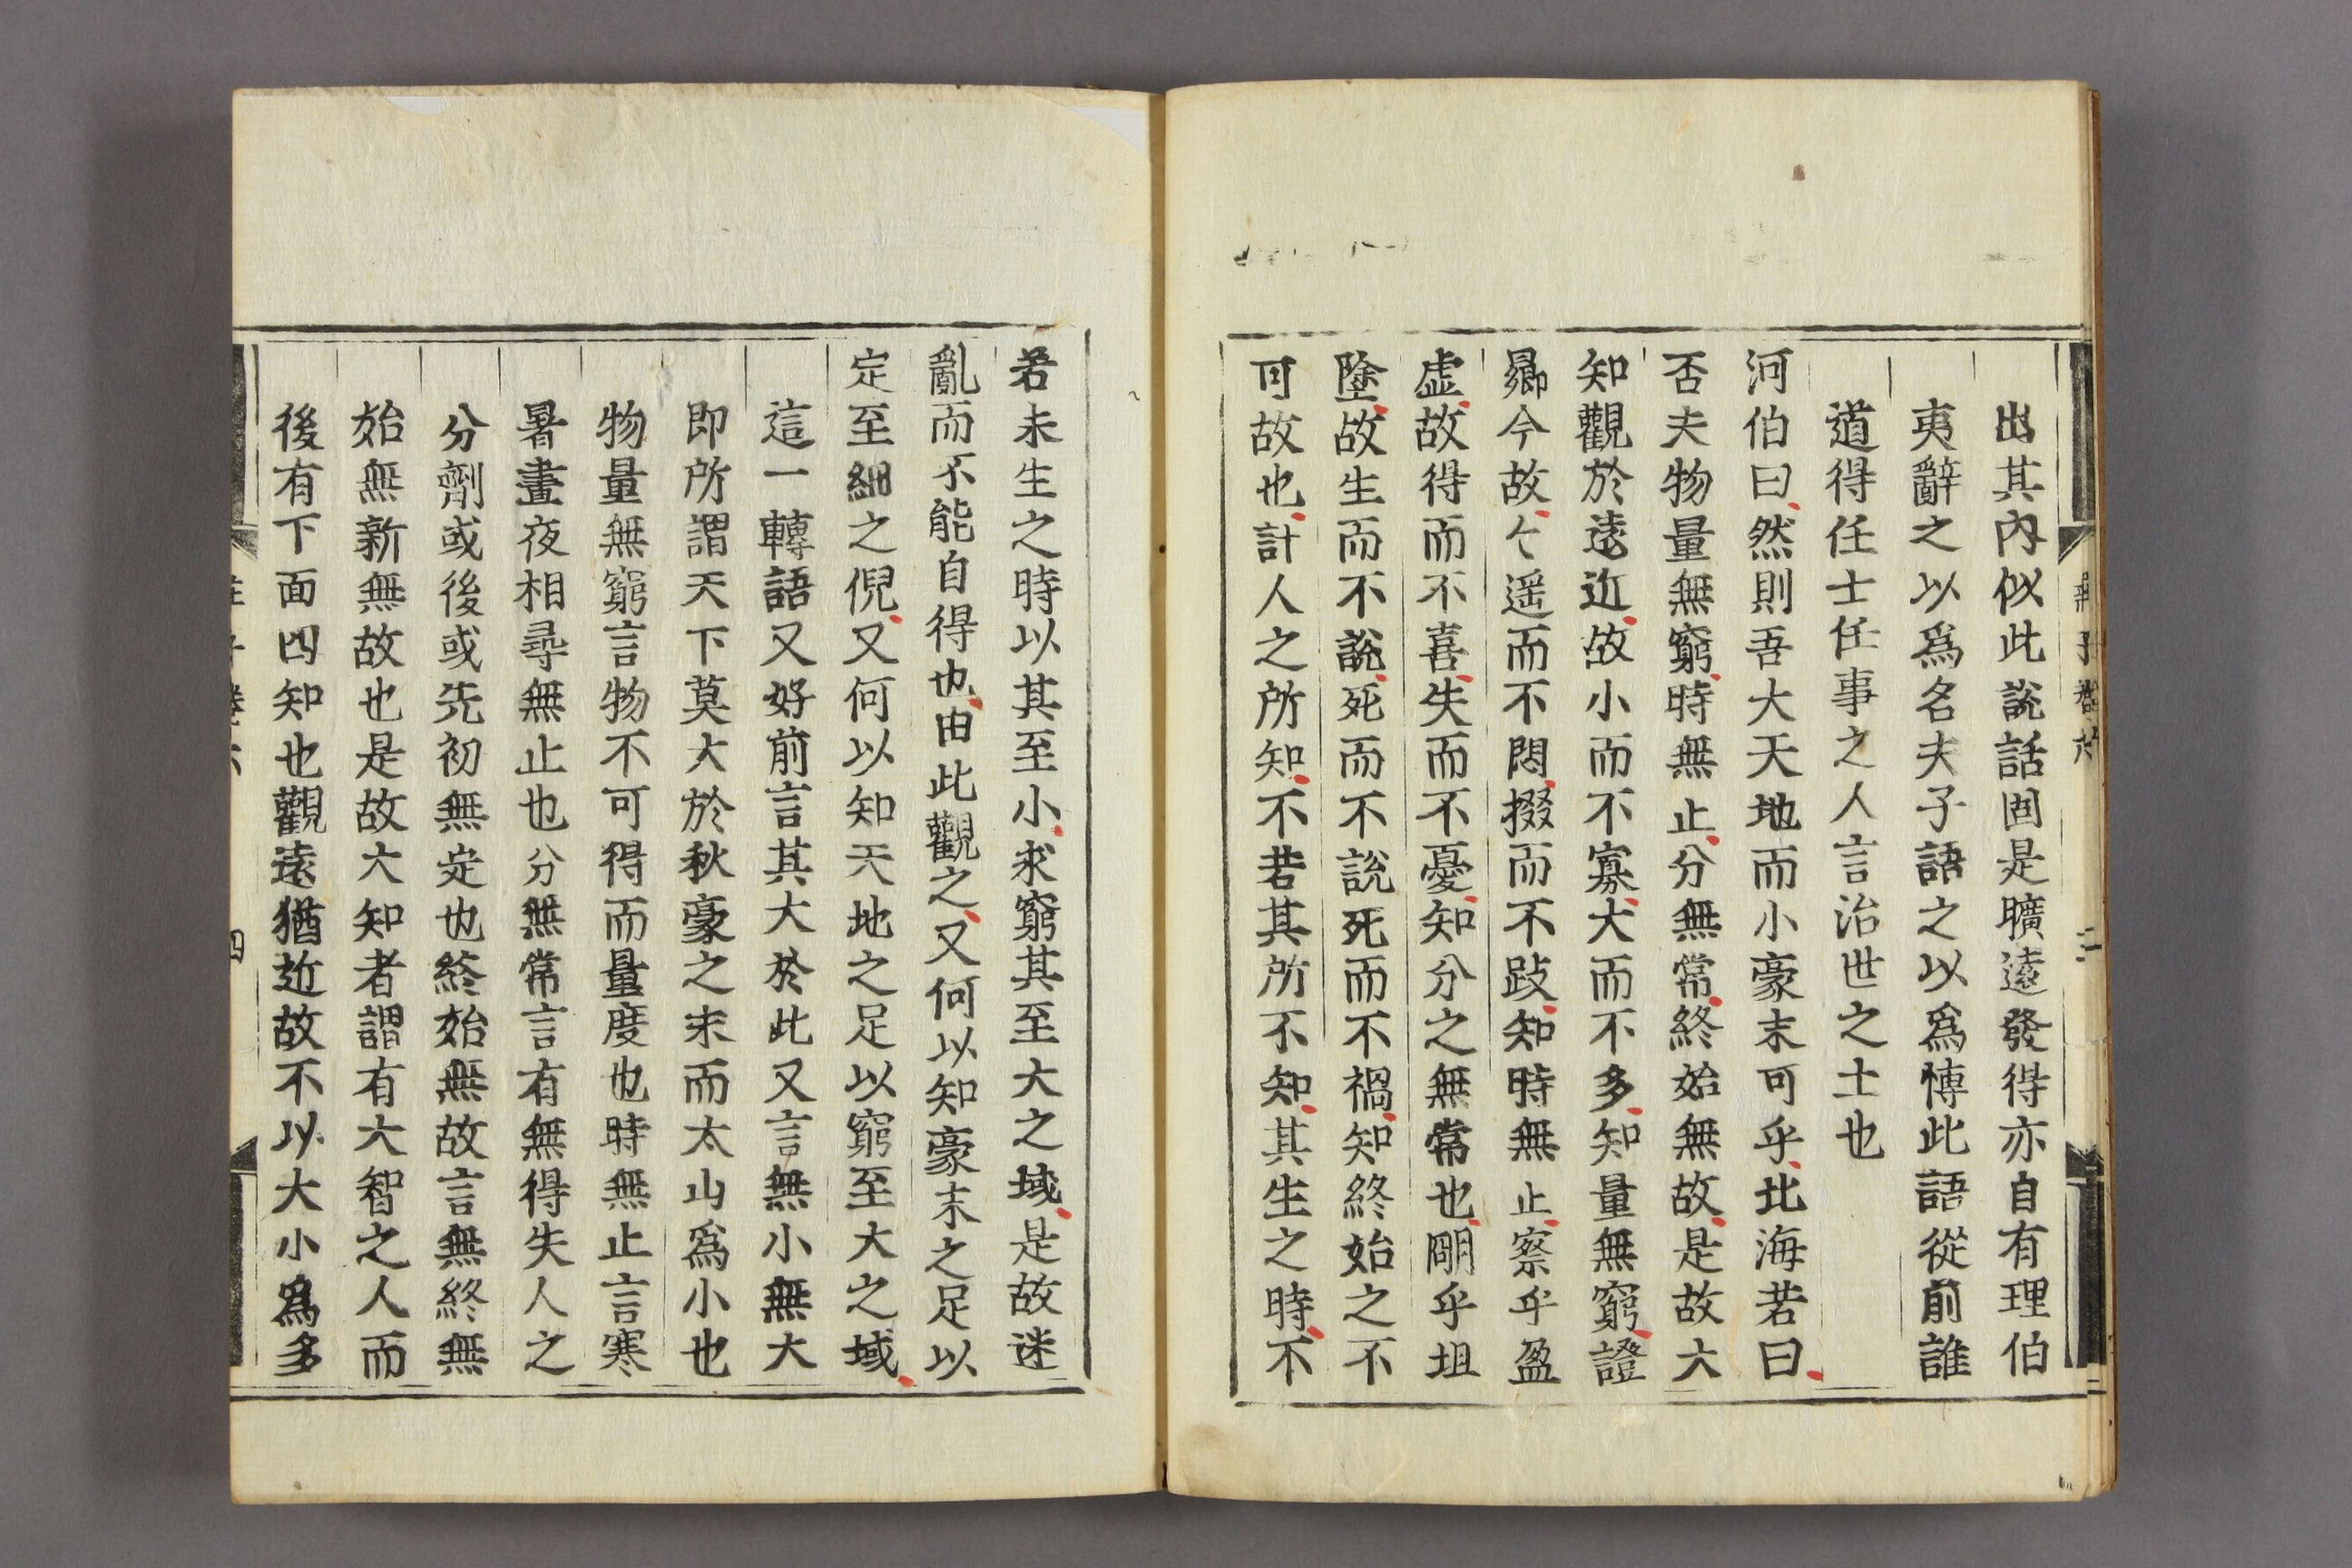 出其內似此說話固是曠遠發得亦自有理伯
夷辭之以爲名夫子語之以爲博此語從前誰
道得任士任事之人言治世之士也
河伯曰然則吾大天地而小豪末可乎北海若曰
否夫物量無窮時無止分無常終始無故是故大
知觀於遠近故小而不寡大而不多知量無窮證
曏今故故遥而不悶掇而不跂知時無止察乎盈
虛故得而不喜失而不憂知分之無常也明乎坦
塗故生而不說死而不說死而不禍知終始之不
可故也計人之所知不若其所不知其生之時不
若未生之時以其至小求窮其至大之域是故迷
亂而不能自得也由此觀之又何以知豪末之足以
定至細之倪又何以知天地之足以窮至大之域
這一轉語又好前言其大於此又言無小無大
即所謂天下莫大於秋豪之末而太山爲小也
物量無窮言物不可得而量度也時無止言寒
暑晝夜相尋無止也分無常言有無得失人之
分劑或後或先初無定也終始無故言無終無
始無新無故也是故大知者謂有大智之人而
後有下面四知也觀遠猶近故不以大小爲多
四